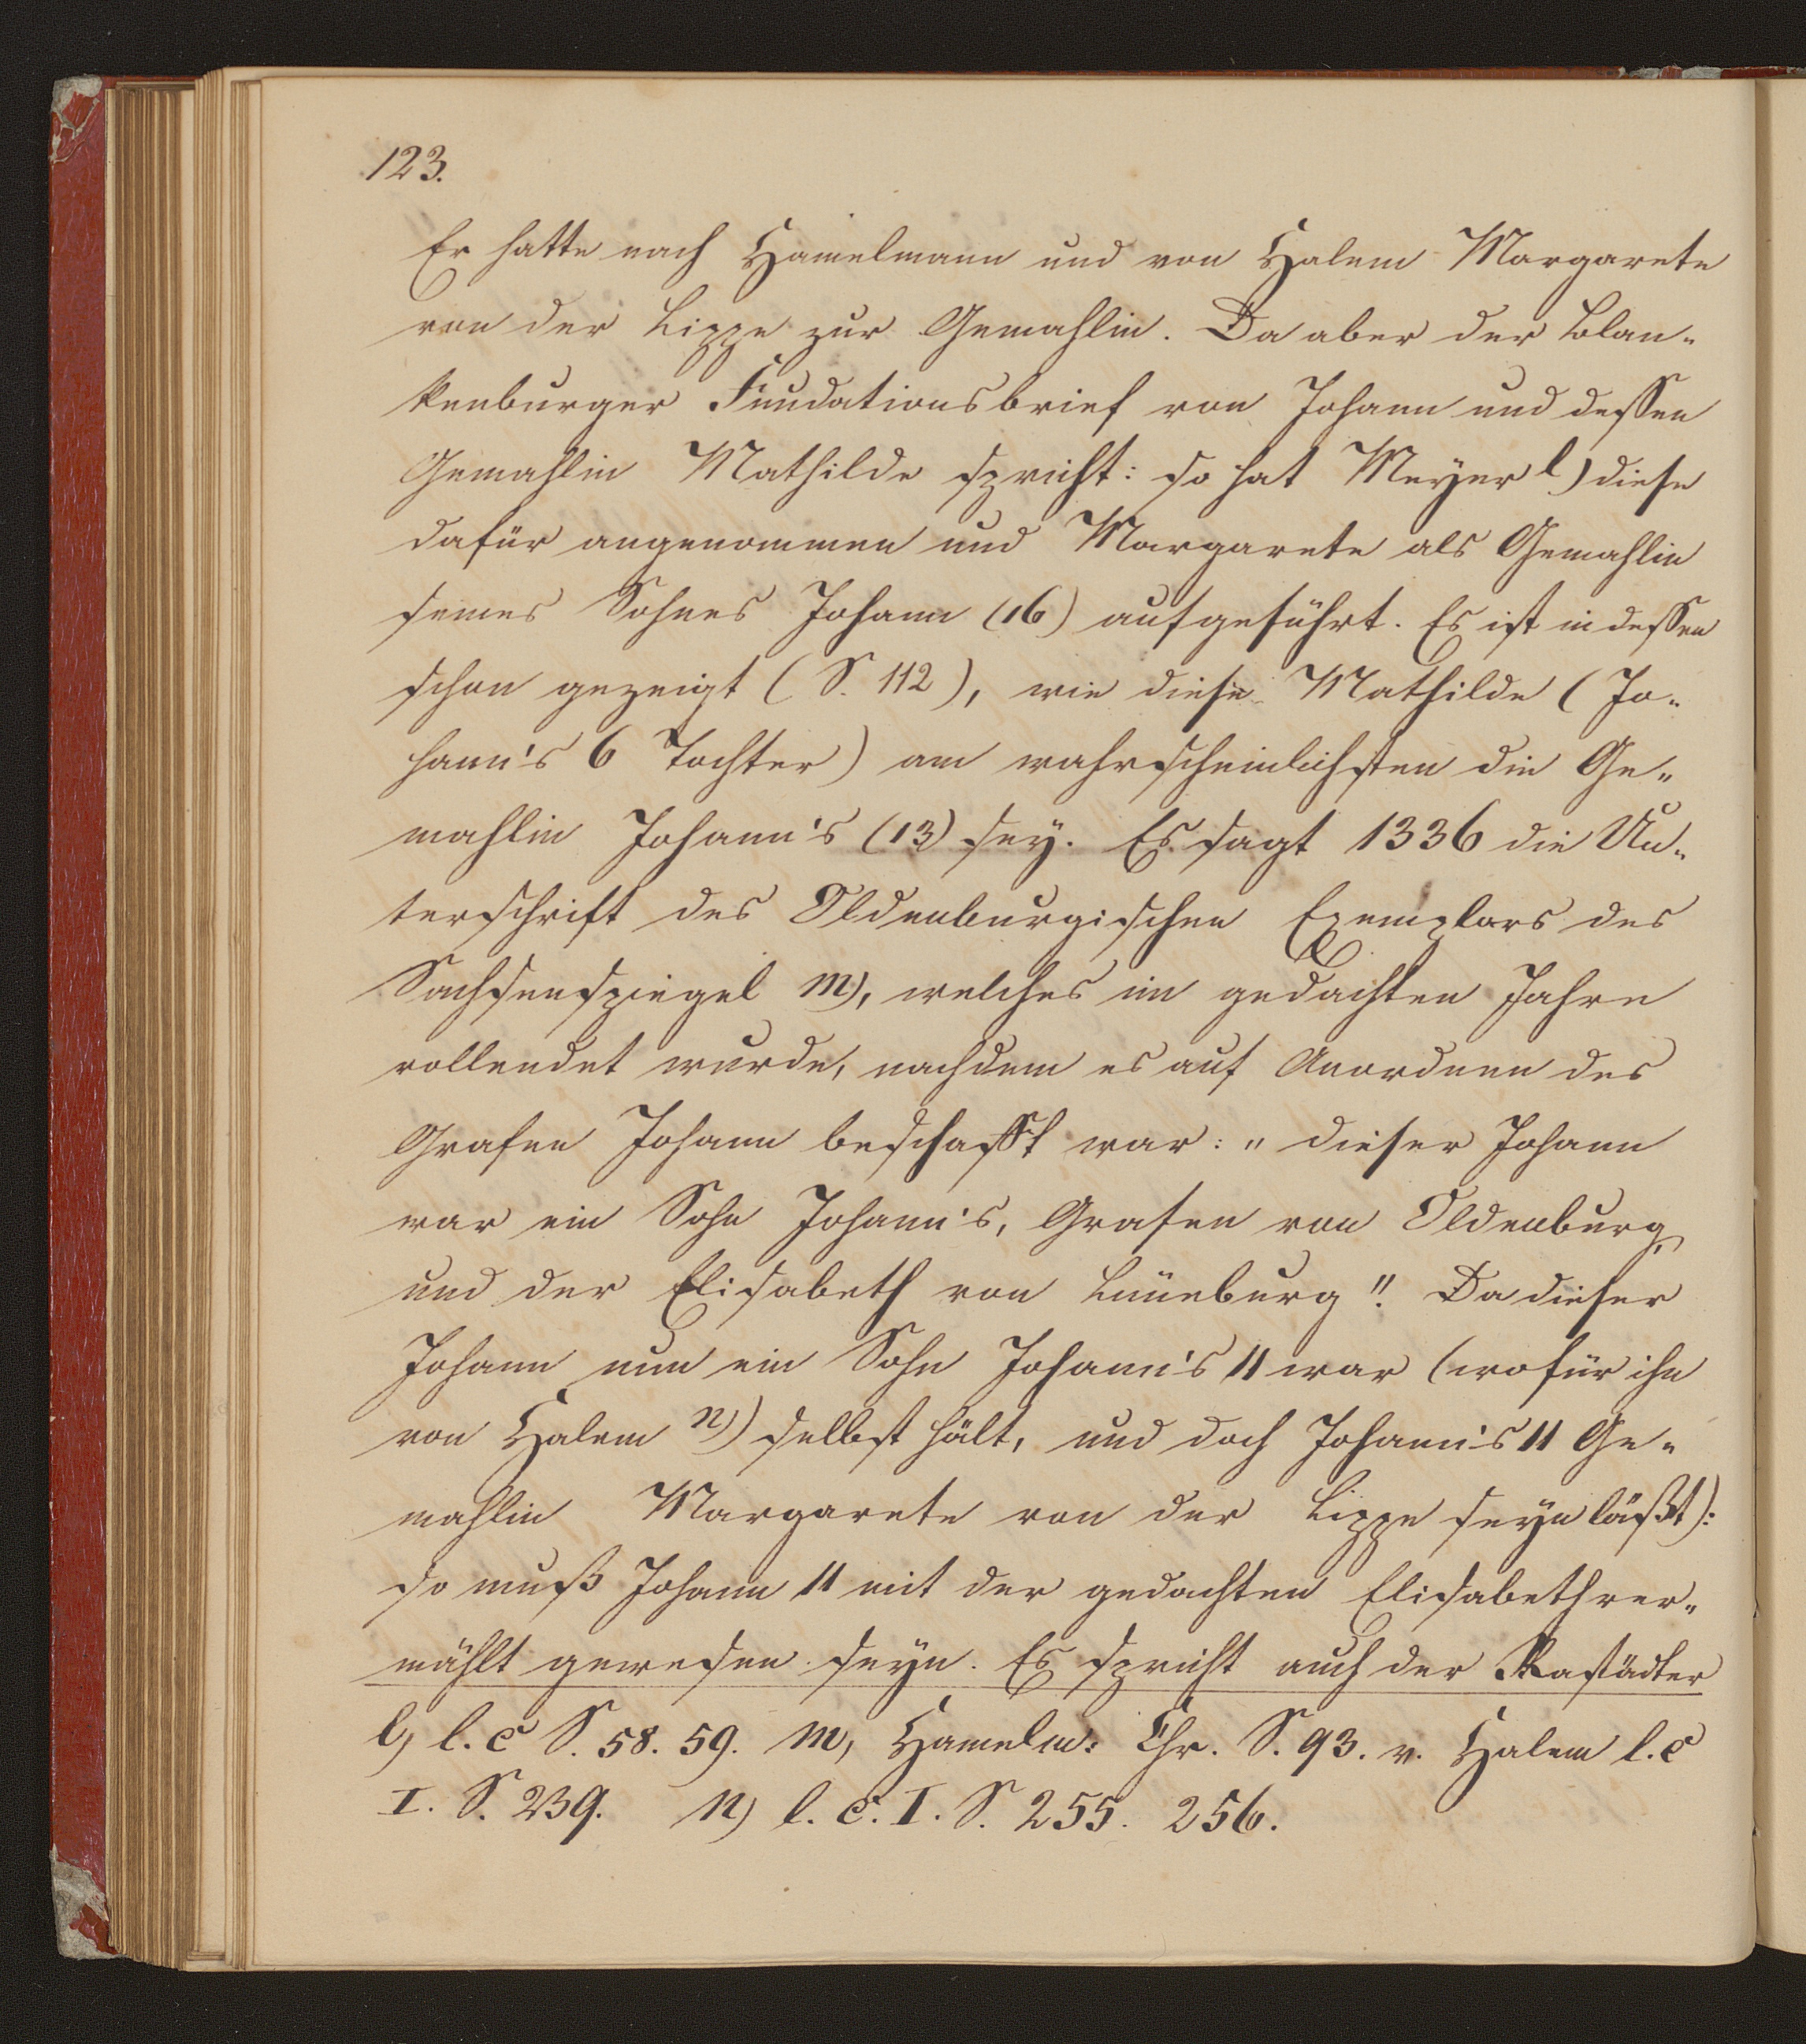 123.
Er hatte nach Hamelmann und von Halem Margarete
von der Lippe zur Gemahlin. Da aber der Blan-
kenburger Fundationsbrief von Johann und dessen
Gemahlin Mathilde spricht: so hat Meyer l) diese
dafür angenommen und Margarete als Gemahlin
seines Sohnes Johann (16) aufgeführt. Es ist indessen
schon gezeigt (S. 112), wie diese Mathilde (Jo-
hann's 6 Tochter) am wahrscheinlichsten die Ge-
mahlin Johann's (13) sey. Es sagt 1336 die Un-
terschrift des Oldenburgischen Exemplars des
Sachsenspiegel m), welches im gedachten Jahre
vollendet wurde, nachdem es auf Anordnen des
Grafen Johann beschafft war: „dieser Johann
war ein Sohn Johann's, Grafen von Oldenburg,
und der Elisabeth von Lüneburg". Da dieser
Johann nun ein Sohn Johann's 11 war (wofür ihn
von Halem n) selbst hält, und doch Johann's 11 Ge-
mahlin Margarete von der Lippe seyn läßt):
so muß Johann 11 mit der gedachten Elisabeth ver-
mählt gewesen seyn. Es spricht auch der Rastädter
l) l. c S. 58. 59. m) Hamelm: Chr. S. 93. v. Halem l. c
I. S. 239. n) l. c. I. S. 255. 256.